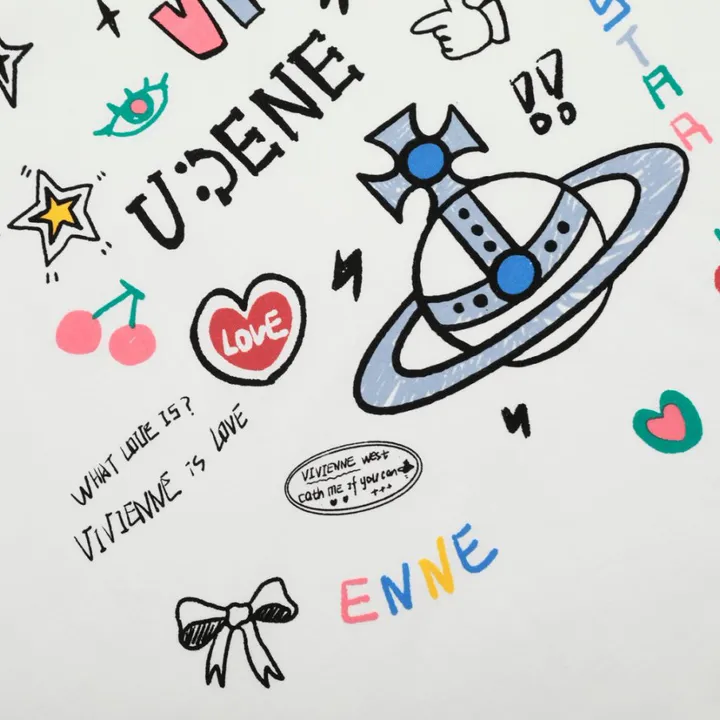 VI
STAR
U:DENE
!!
LOVE
WHAT LOVE IS?
VIVIENNE is LOVE
VIVIENNE West
Cath ME If you can
+++
ENNE